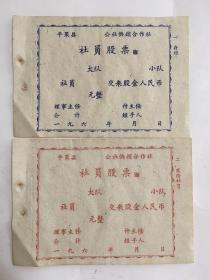 平果县　公社供销合作社
社員股票
大队　小队
社員　交来股金人民币
元整
理事主任　付主任
会計　經手人
一九六　年　月　日
一
平果县　公社供销合作社
社員股票
大队　小队
社員　交来股金人民币
元整
理事主任　付主任
会計　經手人
一九六　年　月　日
二